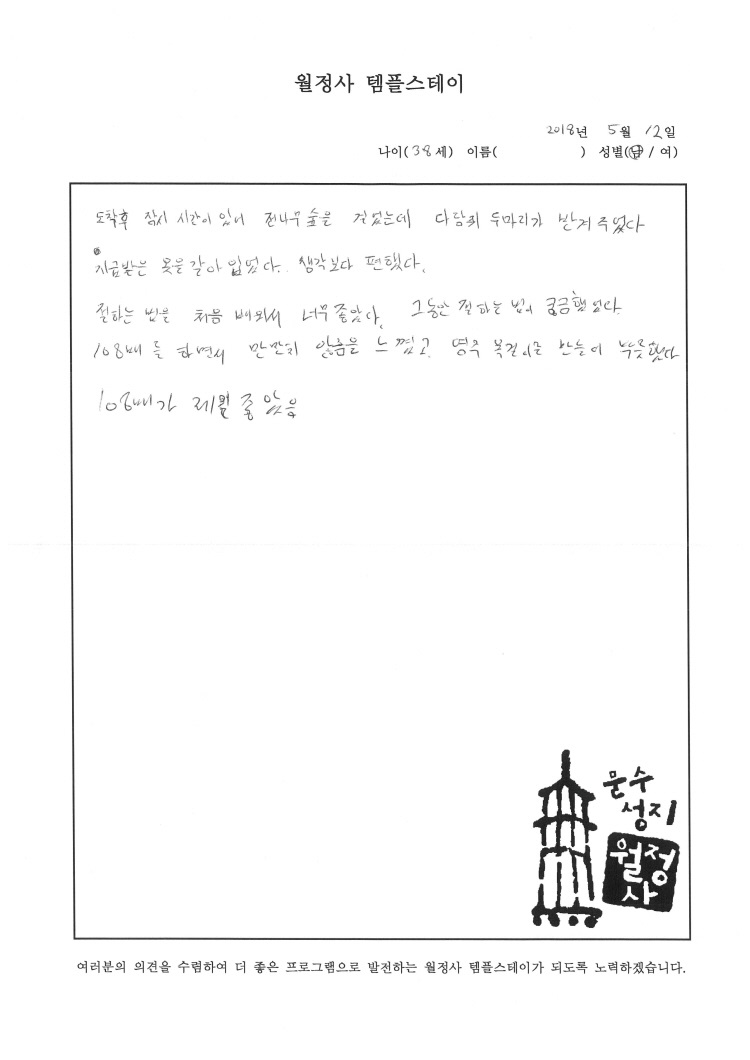 월정사 템플스테이
2018년 5월 12일
나이(38세) 이름( ) 성별(남 / 여)
도착후 잠시 시간이 있어 전나무 숲을 걸었는데 다람쥐 두마리가 반겨주었다
지급받은 옷을 갈아 입었다. 생각보다 편했다.
절하는 법을 처음 배워서 너무 좋았다. 그동안 절하는 법이 궁금했었다.
108배를 하면서 만만치 않음을 느꼈고 염주 목걸이를 만들어 뿌듯했다
108배가 제일 좋았음
문수
성지
월정
사
여러분의 의견을 수렴하여 더 좋은 프로그램으로 발전하는 월정사 템플스테이가 되도록 노력하겠습니다.